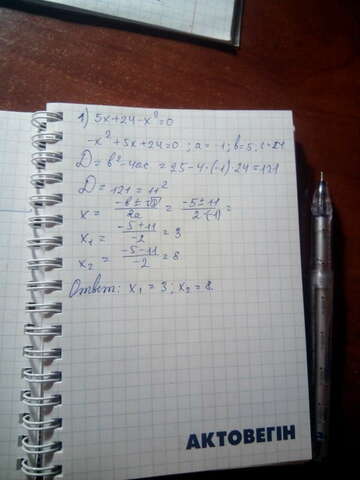 1) 5x+24-x²=0
-x²+5x+24=0 ; a= -1; b=5, c=24
D= b²-4ac = 25-4·(-1)·24=121
D= 121=11²
x= (-b±√D)/2a = (-5±11)/2·(-1) =
x₁= (-5+11)/-2 = 3
x₂= (-5-11)/-2 = 8
Ответ: x₁=3; x₂=8.
АКТОВЕГІН